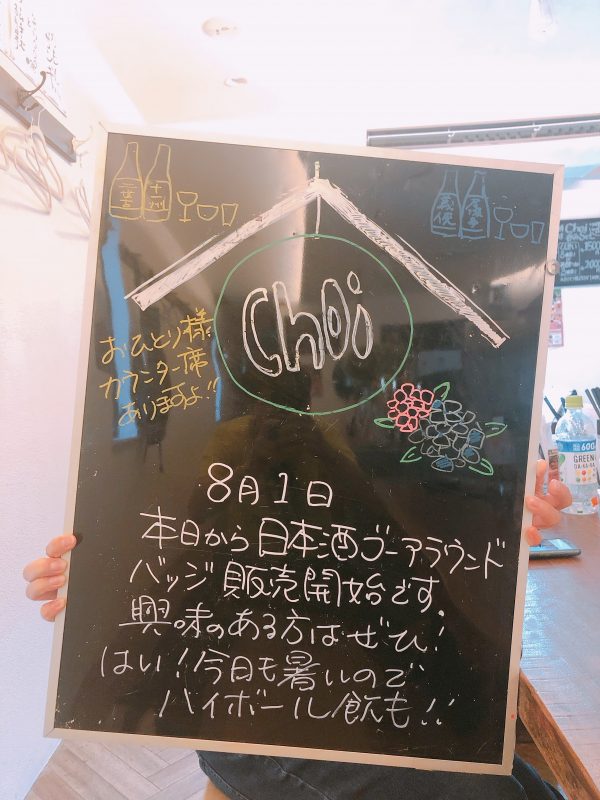 十一州
Choi
おひとり様
カウンター席
ありますよ!!
8月1日
本日から日本酒ゴーアラウンド
バッジ販売開始です。
興味のある方はぜひ!
はい!今日も暑いので
ハイボール飲も!!
600
GREEN
DA・KA・RA